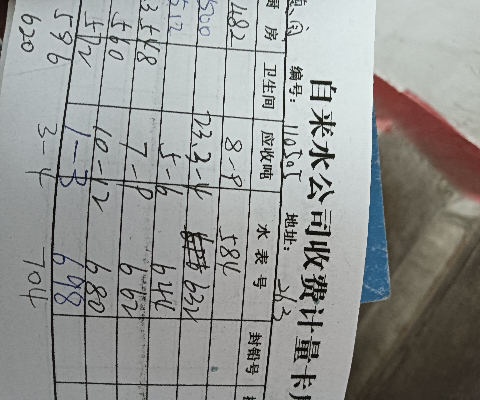 自来水公司收费计量卡
编号: 110505 地址: 263
厨房 卫生间 应收吨 水表号 封铅号
1482 8-9 584
23.2-4 632
5-6 644
3548 7-9 662
560 10-12 680
572 1-3 698
596
620 3-4 704